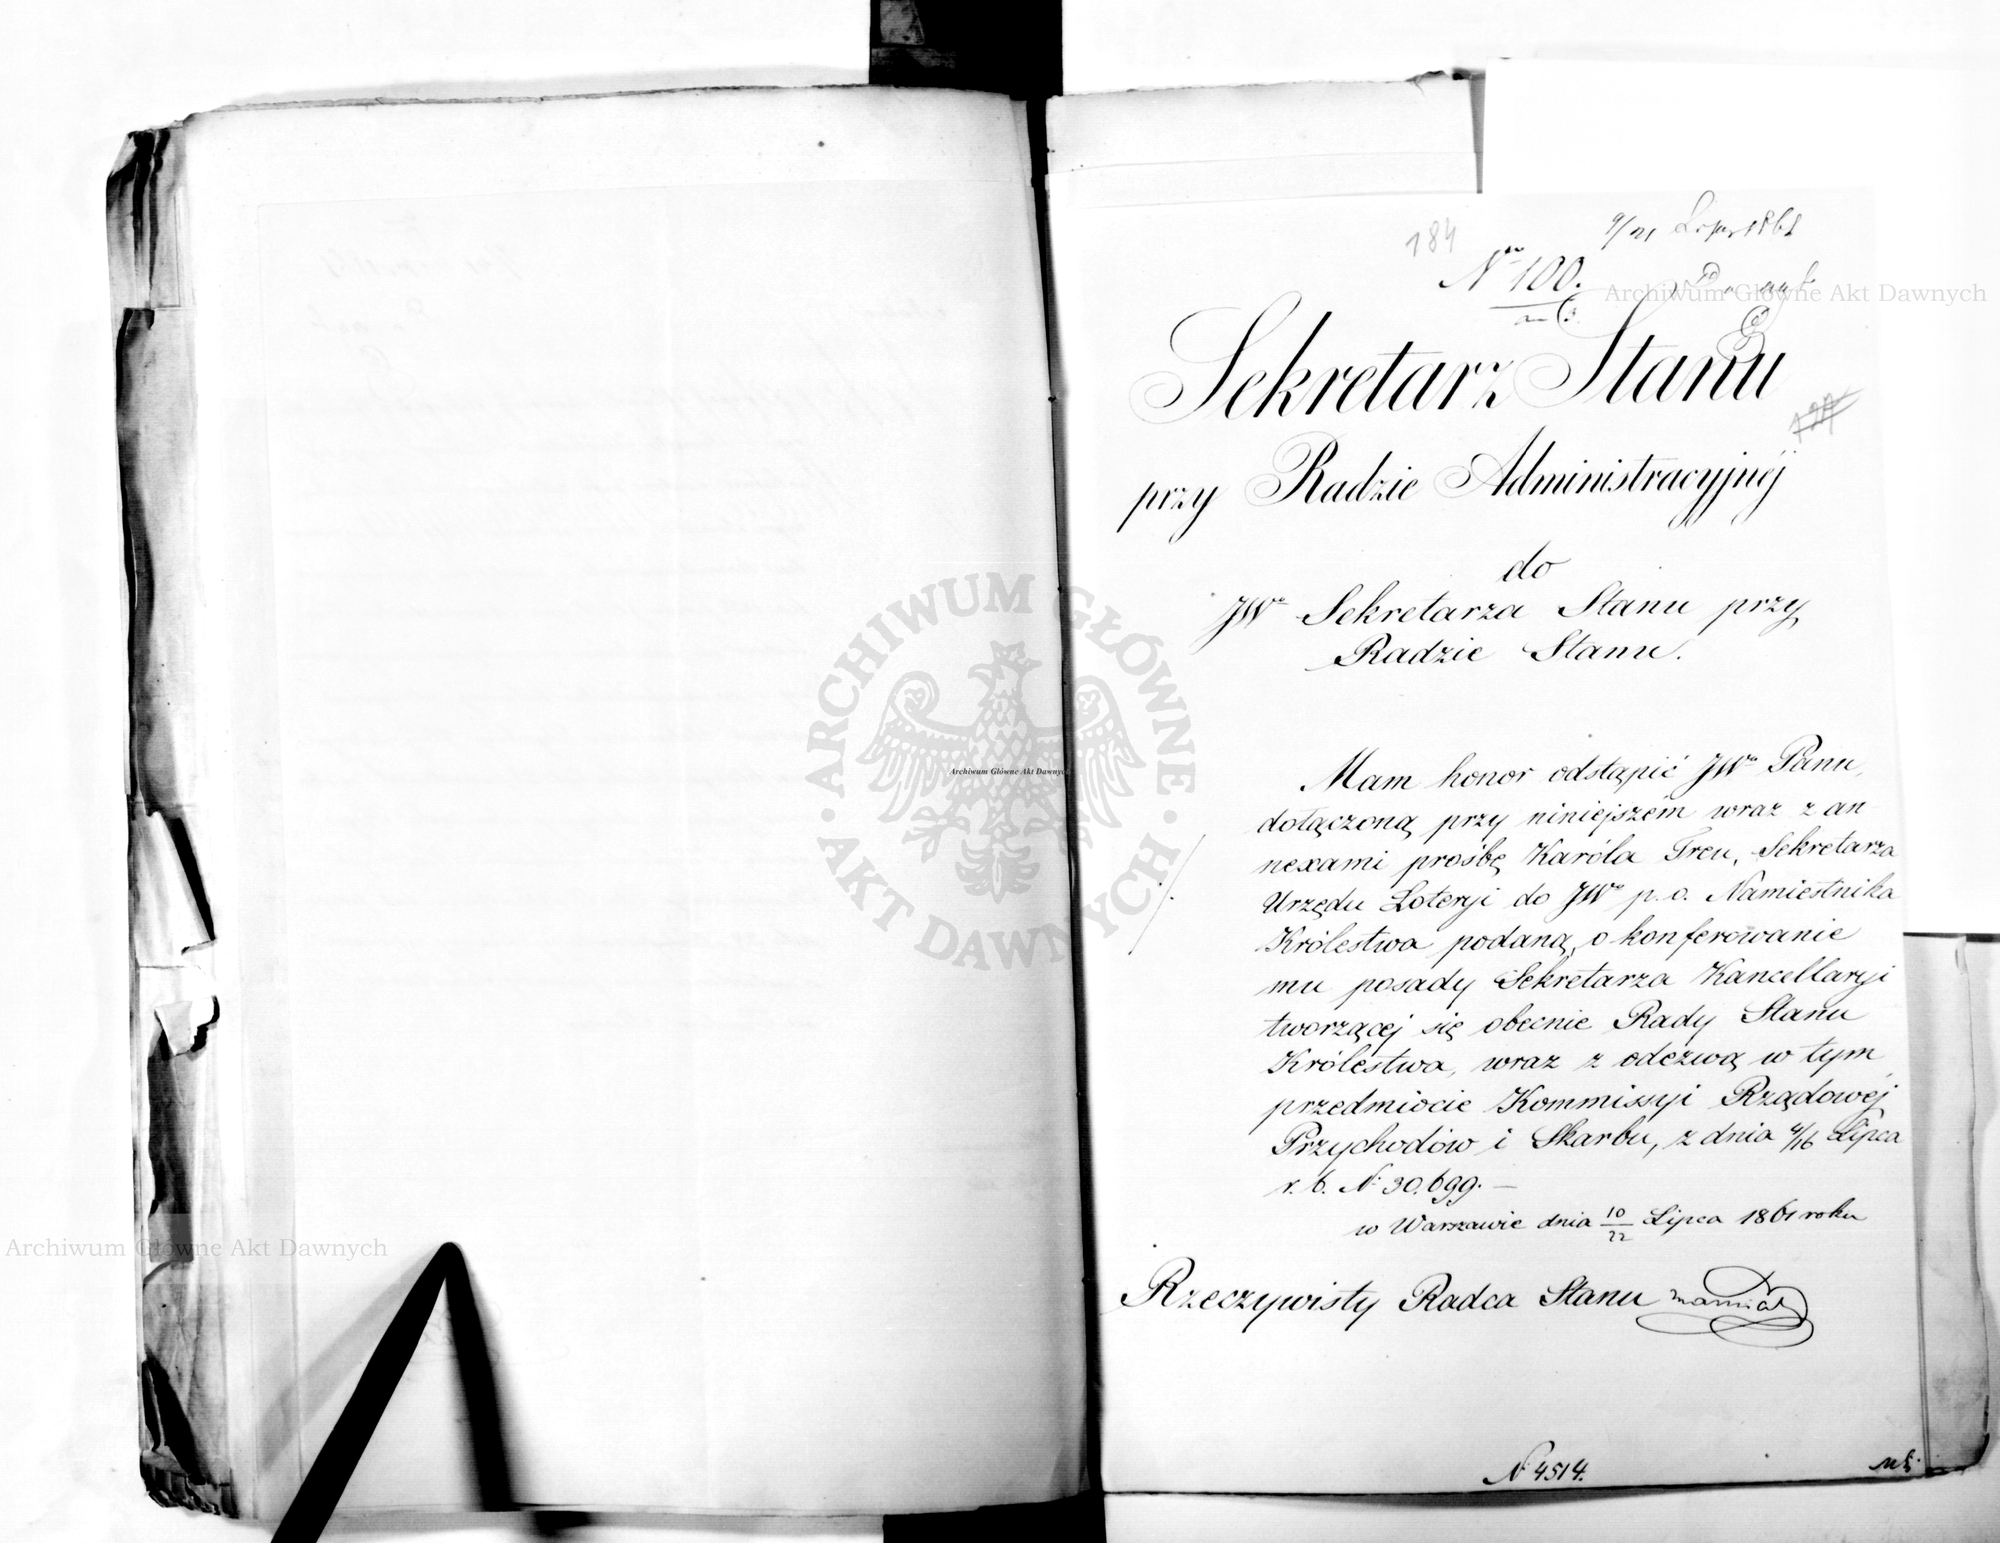 184
9/21 Lipca 1861
No 100.
Sekretarz Stanu
przy Radzie Administracyjnéj
do
JWo Sekretarza Stanu przy
Radzie Stanu.
Mam honor odstąpić JWu Panu,
dołączoną przy niniejszém wraz z an-
nexami prośbę Karóla Treu, Sekretarza
Urzędu Loteryi do JWo p. o. Namiestnika
Królestwa podaną, o konferowanie
mu posady Sekretarza Kancellaryi
tworzącej się obecnie Rady Stanu
Królestwa, wraz z odezwą w tym
przedmiocie Kommissyi Rządowéj
Przychodów i Skarbu, z dnia 4/16 Lipca
r. b. N: 30,699. —
w Warszawie dnia 10/22 Lipca 1861 roku
Rzeczywisty Radca Stanu
N: 4514.
Archiwum Główne Akt Dawnych
ARCHIWUM GŁÓWNE · AKT DAWNYCH ·
Archiwum Główne Akt Dawnych
Archiwum Główne Akt Dawnych